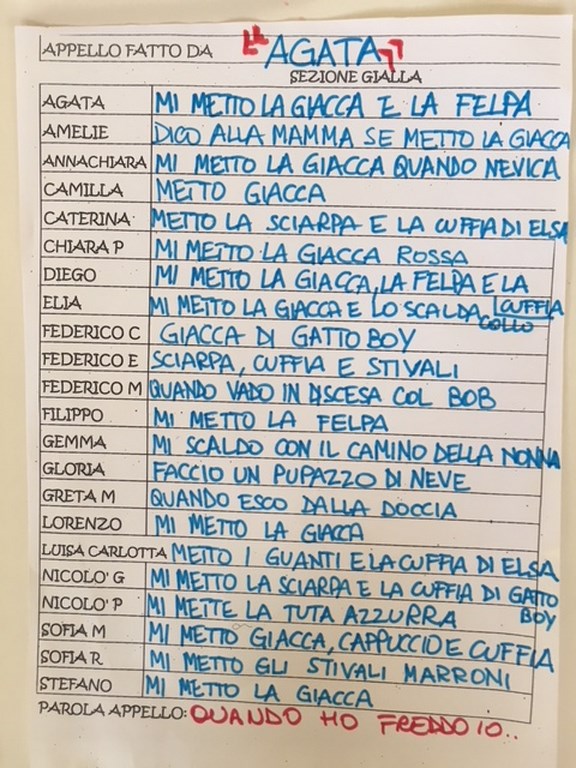 APPELLO FATTO DA AGATA
SEZIONE GIALLA
AGATA MI METTO LA GIACCA E LA FELPA
AMELIE DICO ALLA MAMMA SE METTO LA GIACCA
ANNACHIARA MI METTO LA GIACCA QUANDO NEVICA
CAMILLA METTO GIACCA
CATERINA METTO LA SCIARPA E LA CUFFIA DI ELSA
CHIARA P MI METTO LA GIACCA ROSSA
DIEGO MI METTO LA GIACCA, LA FELPA E LA CUFFIA
ELIA MI METTO LA GIACCA E LO SCALDA COLLO
FEDERICO C GIACCA DI GATTO BOY
FEDERICO E SCIARPA, CUFFIA E STIVALI
FEDERICO M QUANDO VADO IN DISCESA COL BOB
FILIPPO MI METTO LA FELPA
GEMMA MI SCALDO CON IL CAMINO DELLA NONNA
GLORIA FACCIO UN PUPAZZO DI NEVE
GRETA M QUANDO ESCO DALLA DOCCIA
LORENZO MI METTO LA GIACCA
LUISA CARLOTTA METTO I GUANTI E LA CUFFIA DI ELSA
NICOLO' G MI METTO LA SCIARPA E LA CUFFIA DI GATTO BOY
NICOLO' P MI METTE LA TUTA AZZURRA
SOFIA M MI METTO GIACCA, CAPPUCCIO E CUFFIA
SOFIA R MI METTO GLI STIVALI MARRONI
STEFANO MI METTO LA GIACCA
PAROLA APPELLO: QUANDO HO FREDDO IO..